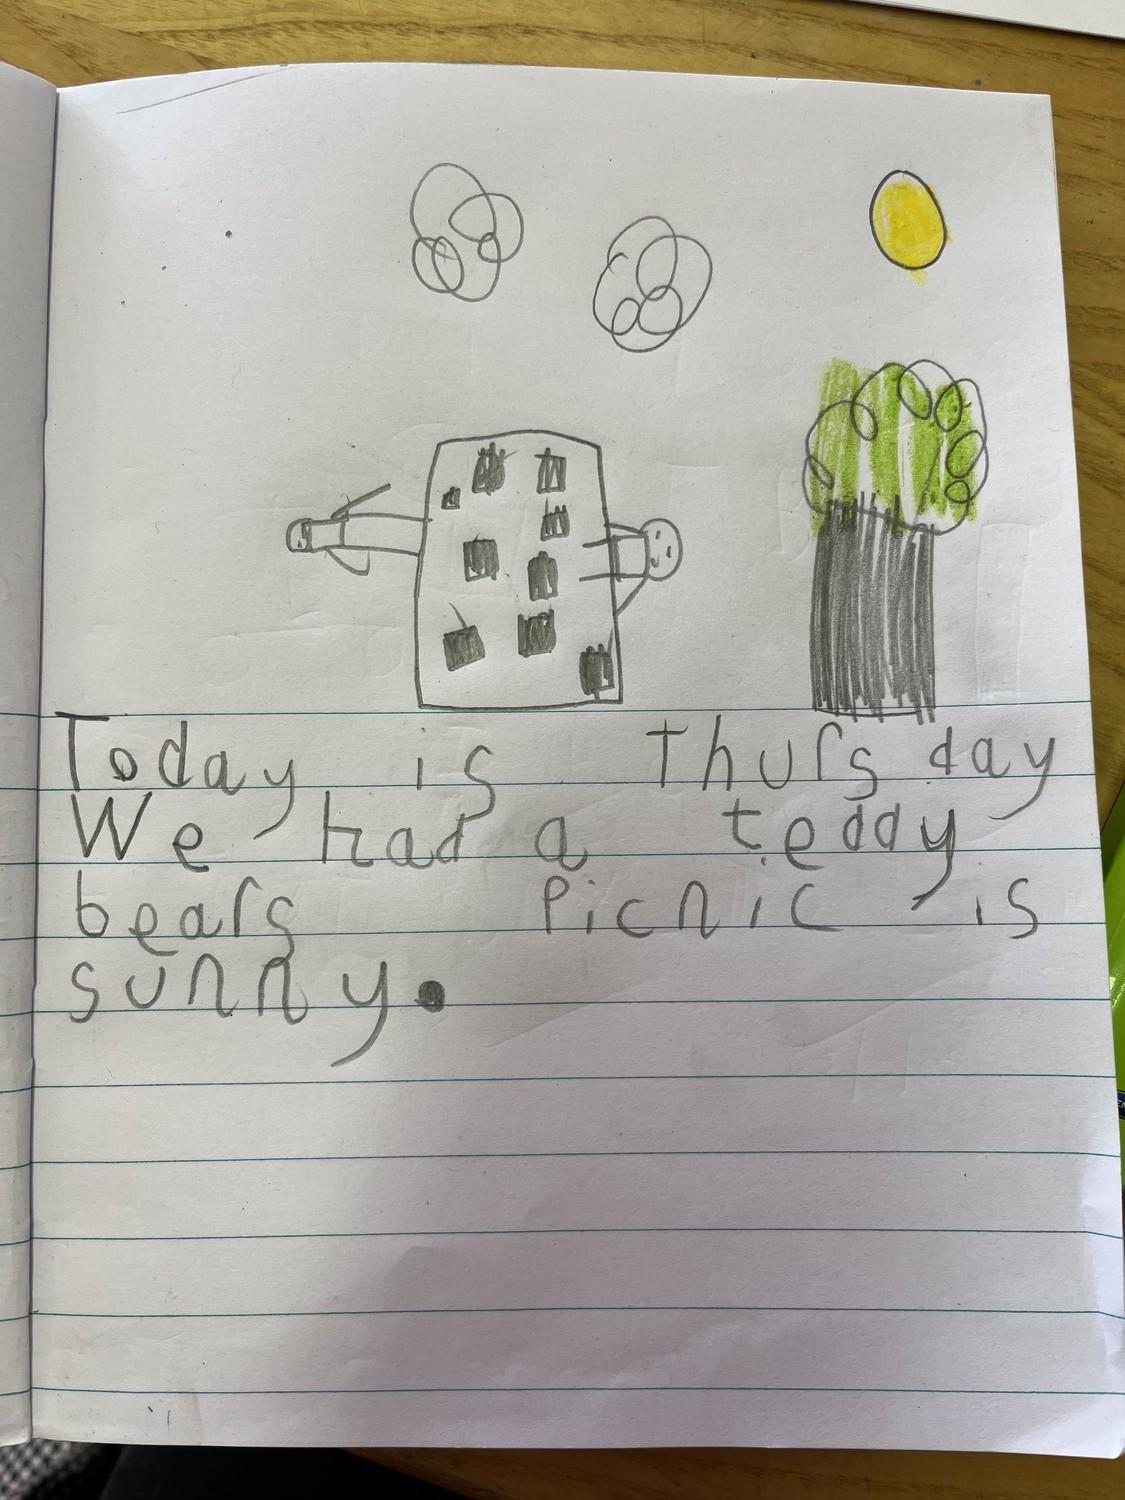 Today is Thursday
We had a teddy
bears Picnic is
sunny.